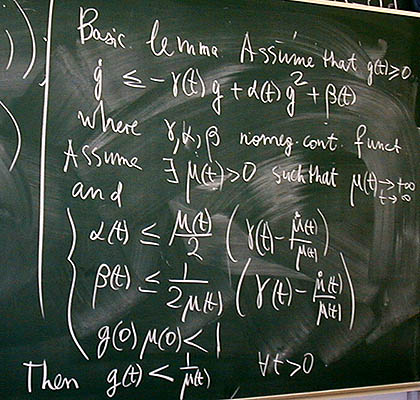 Basic lemma Assume that g(t)≥0
ġ ≤ -γ(t)g + α(t)g² + β(t)
where γ, α, β nonneg. cont. funct
Assume ∃ μ(t)>0 such that μ(t) → +∞ t→∞
and
α(t) ≤ μ(t)/2 (γ(t) - μ̇(t)/μ(t))
β(t) ≤ 1/2μ(t) (γ(t) - μ̇(t)/μ(t))
g(0) μ(0) < 1
Then g(t) < 1/μ(t) ∀t>0